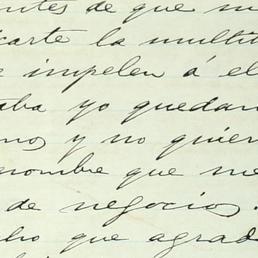 ntes de que m
icarte la multit
e impelen á el
aba yo quedan
mos y no quier
nombre que me
de negocios.
cho que agrad